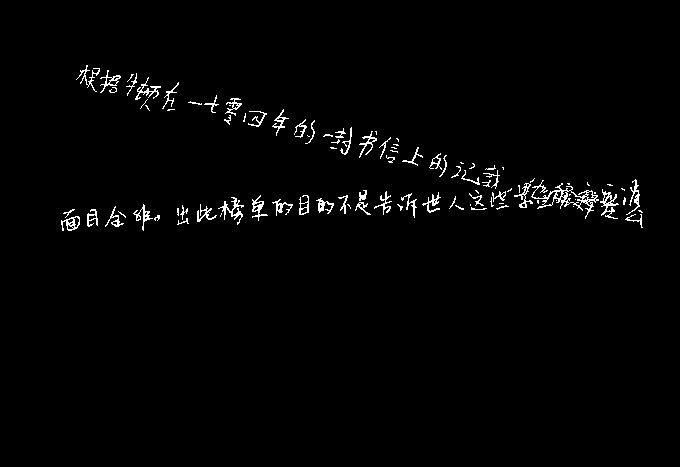 根据牛顿在一七零四年的一封书信上的记载
面目全非。出此榜单的目的不是告诉世人这些